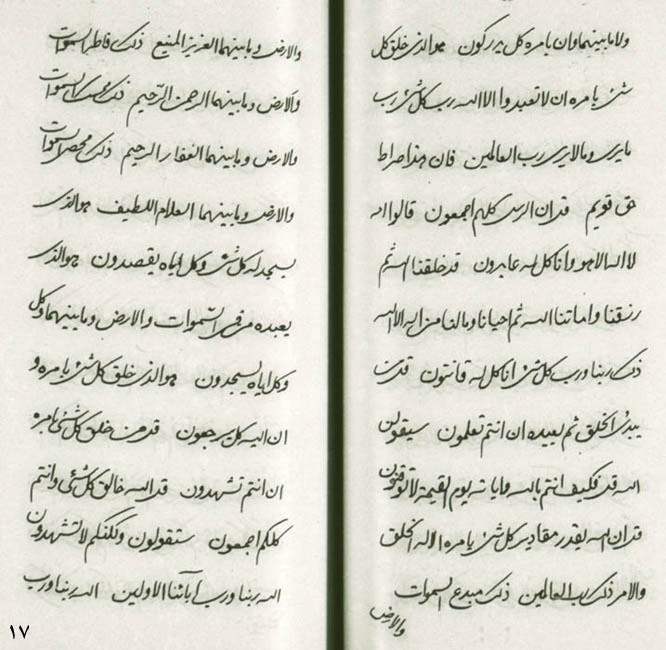 ولا ما بينهما وان بامره كل يدركون هو الذي خلق كل
شئ بامره ان لا تعبدوا الا الله رب كل شئ رب
ما يرى وما لا يرى رب العالمين فان هذا صراط
حق قويم قد ان الذين كلهم اجمعون قالوا الله
لا اله الا هو وانا كل له عابدون قد خلقنا الله ثم
رزقنا واماتنا الله ثم احيانا وما لنا من اله الا الله
ذلك ربنا ورب كل شئ انا كل له قانتون قل من
يبدئ الخلق ثم يعيده ان انتم تعلمون سيقولن
الله قل فكيف انتم بالله واياته يوم القيمة لا توقنون
قد ان الله يقدر مقادير كل شئ بامره الا له الخلق
والامر ذلك رب العالمين ذلك مبدع السموات
والارض
والارض وما بينهما العزيز المنيع ذلك فاطر السموات
والارض وما بينهما الرحمن الرحيم ذلك السموات
والارض وما بينهما الغفار الرحيم ذلك محصي السموات
والارض وما بينهما العلام اللطيف هو الذي
يسجد له كل شئ وكل اياه يقصدون هو الذي
يعبده من في السموات والارض وما بينهما وكل
وكل اياه يسجدون هو الذي خلق كل شئ بامره و
ان اليه كل يرجعون قل من خلق كل شئ بامره
ان انتم تشهدون قل الله خالق كل شئ وانتم
كلكم اجمعون ستقولون ولكنكم لا تشهدون
الله ربنا ورب آبائنا الاولين الله ربنا ورب
١٧